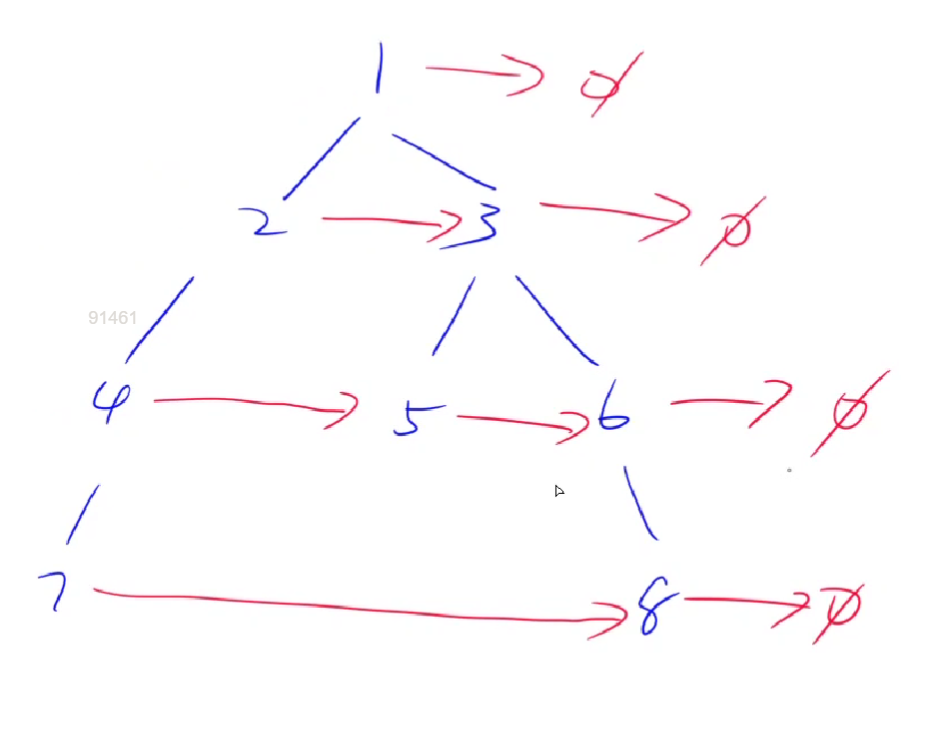 1 → ∅
2 → 3 → ∅
91461
4 → 5 → 6 → ∅
7 → 8 → ∅